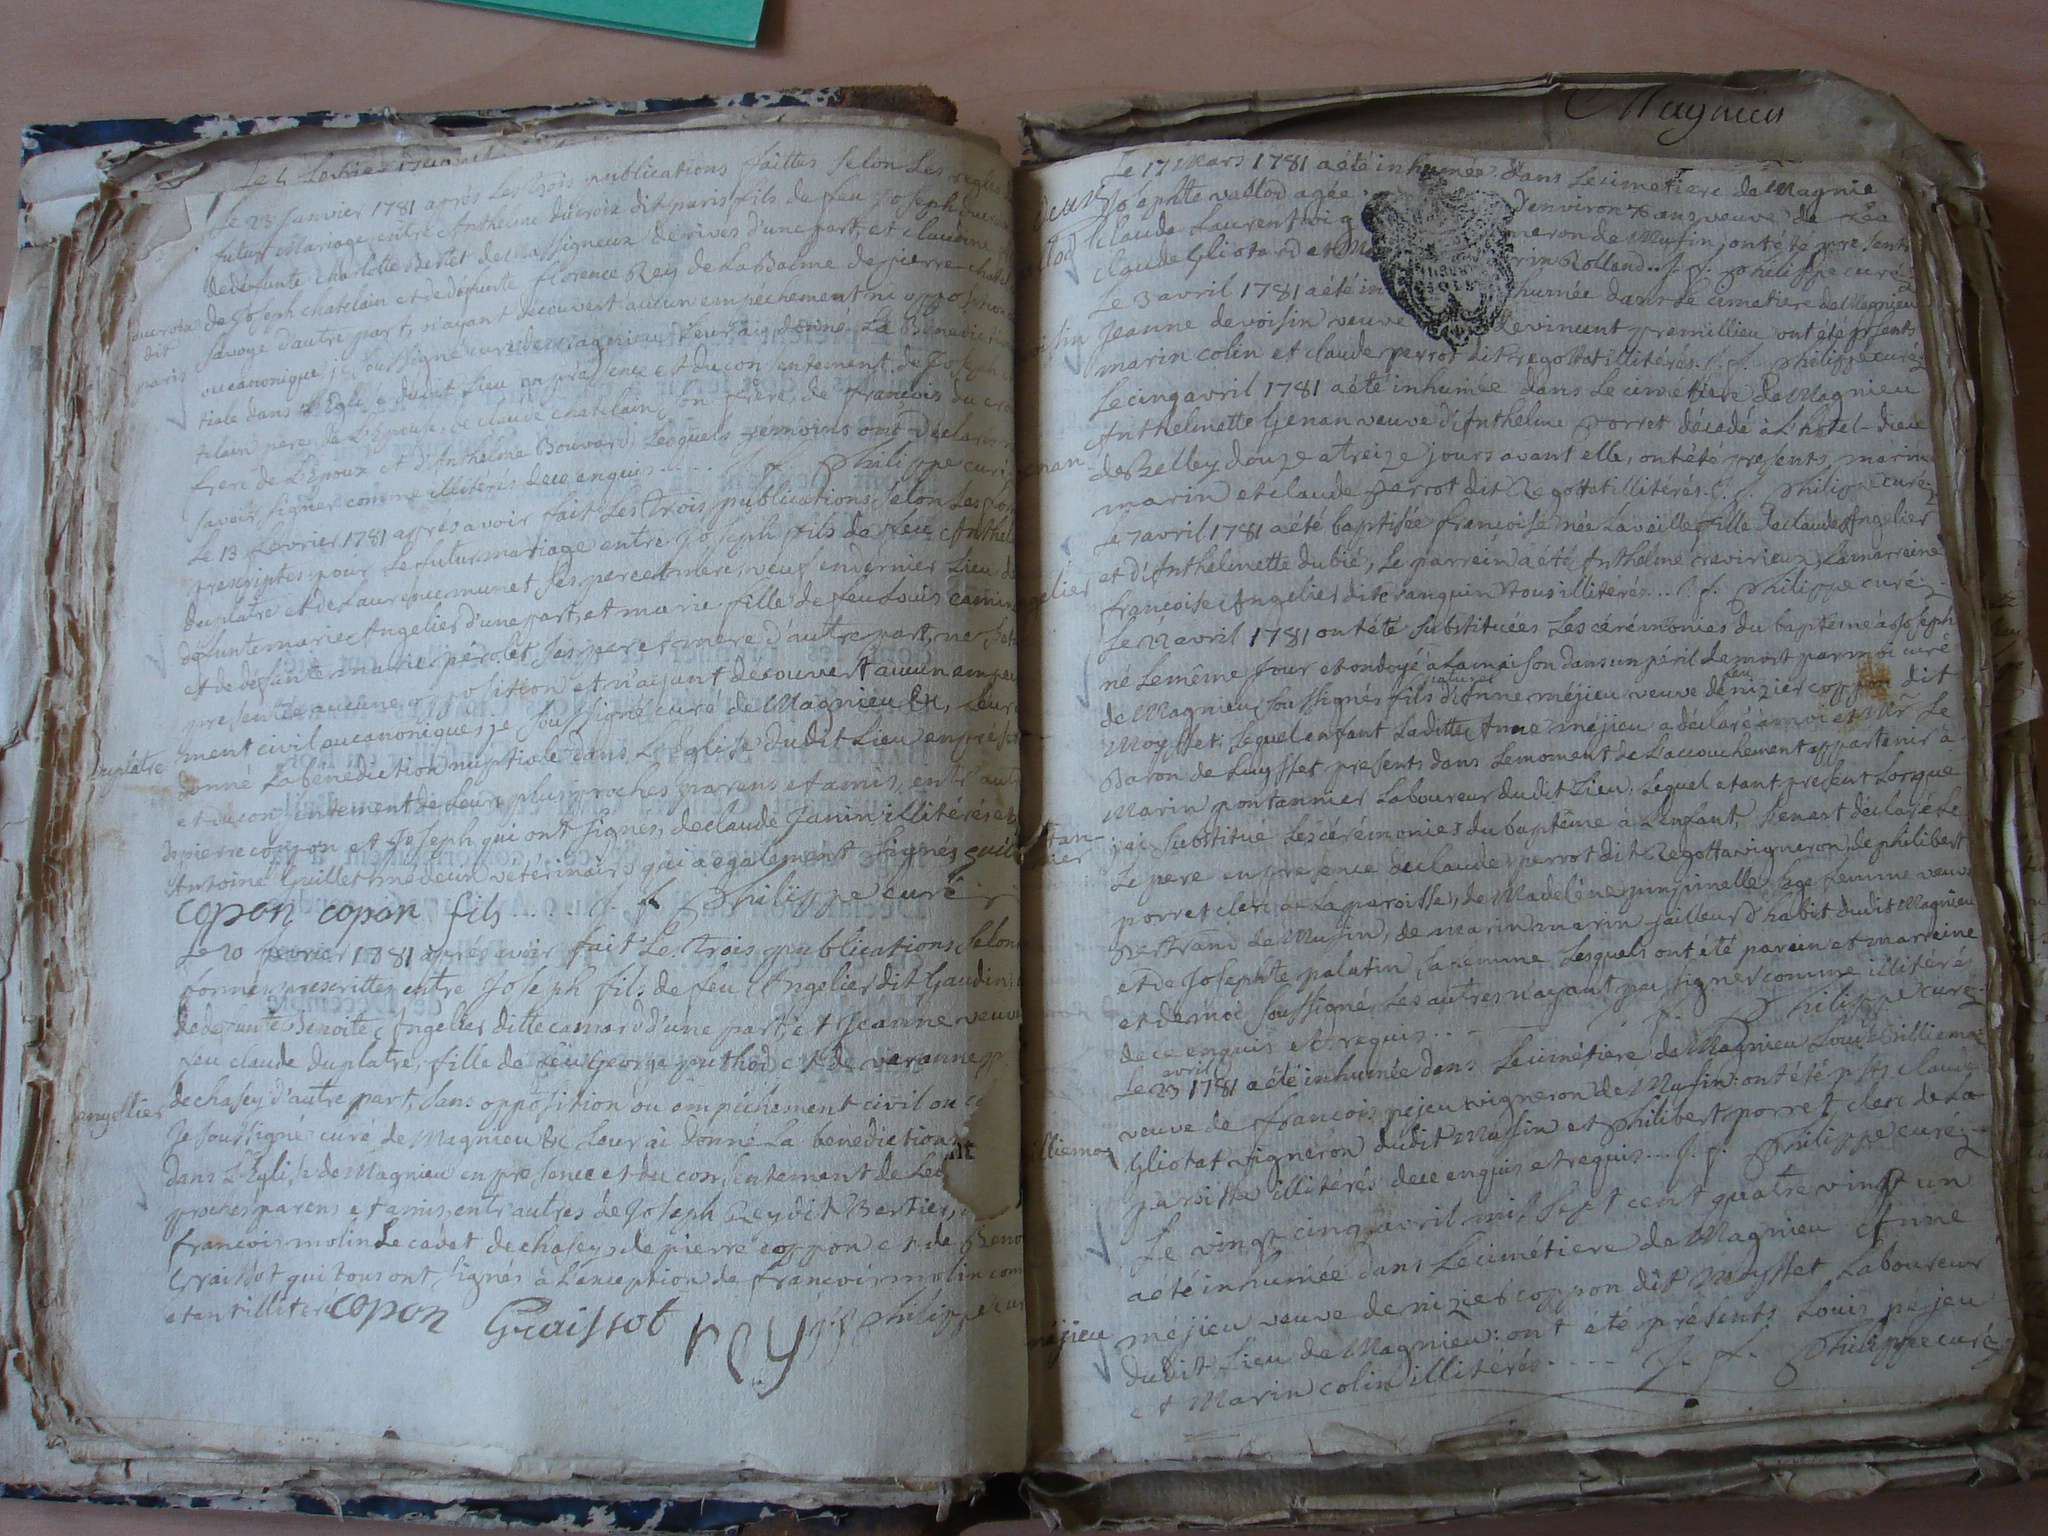 Magnieu
Le 23 Janvier 1781 après Les trois publications faittes selon Les regles
futur Mariage entre Anthelme ducroix dit paris fils de feu Joseph ducroix
de défunte charlotte Bertet de Massigneux de rives d'une part, et claudine
de Joseph chatelain et de défunte florence Rey de La Balme de pierre chatel
savoye d'autre part, n'ayant découvert aucun empéchement ni opposition
ou canonique, je soussigné curé de Magnieu Leur ai donné La bénédiction
tiale dans L'Eglise dudit Lieu en presence et du consentement de Joseph
telain pere de L'Epouse, de claude chatelain son frere, de françois du croix
frere de L'Epoux et d'Anthelme Bouvard Lesquels témoins ont déclaré
savoir signer comme illitérés de ce enquis . . . . J. f. Philippe curé
ducroix
dit
paris
Le 13 fevrier 1781 après avoir fait Les trois publications selon Les
prescriptes pour Le futur mariage entre Joseph fils de feu Anthelme
duplatre et de Laurence munet ses pere et mere, veuf en dernier Lieu de
défunte marie Angelier d'une part, et marie fille de feu Louis
et de défunte marie perolet ses pere et mere d'autre part, ne
presentée aucune opposition et n'ayant découvert aucun empé
chement civil ou canonique, je soussigné curé de Magnieu &c, Leur
donné La bénédiction nuptiale dans L'Eglise dudit Lieu en présence
et du consentement de Leurs plus proches parens et amis, entr'autres
de pierre coppon et Joseph qui ont signés, de claude Janin illitérés et
Antoine Guillet medecin vétérinaire qui a egalement signés
copon copon fils . . . . J. f. Philippe curé
duplatre
Le 20 fevrier 1781 après avoir fait Les trois publications selon
formes prescrittes entre Joseph fils de feu Angelier dit Gaudin
de defunte Benoite Angelier ditte camard d'une part, et Jeanne veuve
feu claude duplatre, fille de feu George puthod et de
de chasey d'autre part, sans opposition ou empéchement civil ou
Je soussigné curé de Magnieu &c Leur ai donné La benediction
dans L'Eglise de Magnieu en presence et du consentement de Leurs
proches parens et amis, entr'autres de Joseph Rey dit Bertier,
françois molin Le cadet de chasey, de pierre coppon et de Benoit
Graissot qui tous ont signés à L'exception de françois molin comme
etant illitéré copon Graissot rey J. f. Philippe curé
angellier
Le 17 Mars 1781 a été inhumée dans Le cimetiere de Magnieu
Josephte vallod agée d'environ 76 ans veuve de feu
claude Laurent vigneron de Musin, ont été presents
claude Gliotard et Marin Rolland. . J. f. Philippe curé
Le 3 avril 1781 a été inhumée dans Le cimetiere de Magnieu
Jeanne devoisin veuve de vincent premillieu ont été présents
marin colin et claude perrot dit regottat illitérés. J. f. Philippe curé
Le cinq avril 1781 a été inhumée dans Le cimetiere de Magnieu
Anthelmette Genan veuve d'Anthelme porret décédé à L'hotel-dieu
de Belley douze a treize jours avant elle, ont été presents marin
marin et claude perrot dit regottat illitérés. J. f. Philippe curé
Le 7 avril 1781 a été baptisée françoise née La veille fille de claude Angelier
et d'Anthelmette dubié, Le parrein a été Anthelme crevirieux, La marreine
françoise Angelier dit tranquin tous illitérés. . . J. f. Philippe curé
Le 22 avril 1781 ont été substituées Les cérémonies du baptême à Joseph
né Le même jour et ondoyé à La maison dans un péril de mort par moi curé
de Magnieu soussigné fils naturel d'Anne méjieu veuve de feu nizier coppon dit
Moysset: Lequel enfant Laditte Anne méjieu a déclaré à moi et Mr Le
Baron de Luysset presents dans Le moment de L'accouchement appartenir à
Marin pontannier Laboureur dudit Lieu: Lequel etant present Lorsque
j'ai substitué Les cérémonies du baptême à L'enfant, s'en est déclaré Le
Le pere en presence de claude perrot dit Regotta vigneron, de philibert
porret clerc de La paroisse, de Madelene pimpinelle sage femme veuve
Bertrand de Musin, de marin marin tailleur d'habit dudit Magnieu
et de Josephte palatin sa femme Lesquels ont été parein et marreine
et de moi soussigné, Les autres n'ayant pu signer comme illitérés
de ce enquis et requis . . . J. f. Philippe curé
Le 23 avril 1781 a été inhumée dans Le cimétiere de Magnieu Louise villiemoz
veuve de françois pejeu vigneron de Musin: ont été psts claude
Gliotat vigneron dudit Musin et Philibert porret, clerc de La
paroisse illitérés de ce enquis et requis. . . J. f. Philippe curé
villiemoz
Le vingt cinq avril mil sept cent quatre vingt un
a été inhumée dans Le cimétiere de Magnieu Anne
méjieu veuve de nizier coppon dit Moysset Laboureur
dudit Lieu de Magnieu: ont été présents Louis pejeu
et Marin colin illitérés . . . . . J. f. Philippe curé
méjieu